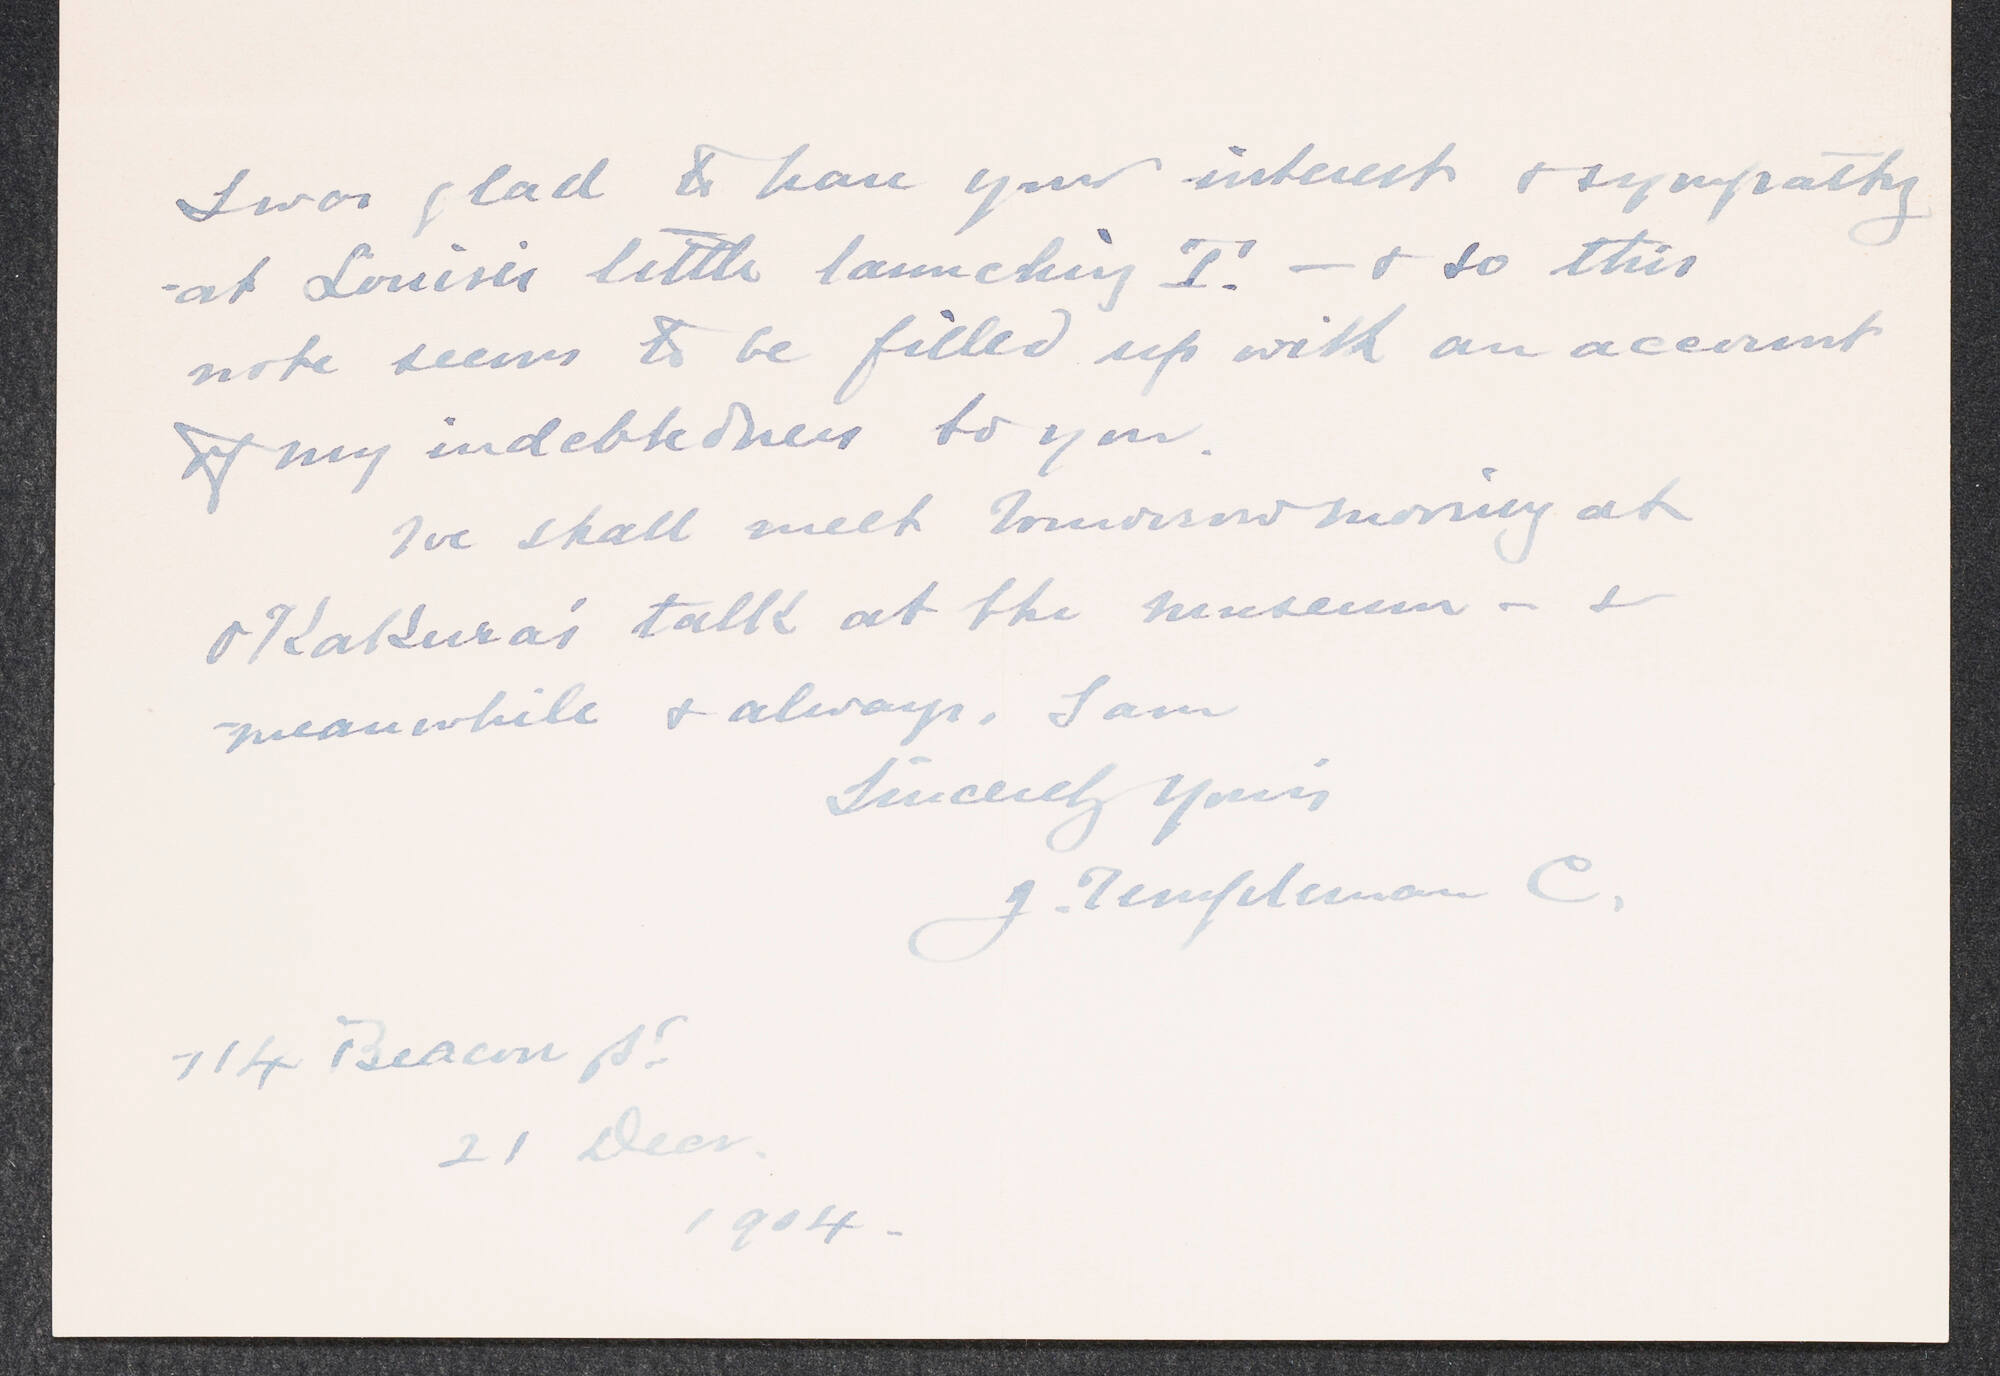 I was glad to have your interest & sympathy
at Louise's little launching T. — & so this
note seems to be filled up with an account
of my indebtedness to you.
We shall meet tomorrow morning at
Okakura's talk at the museum - &
meanwhile & always, I am
Sincerely Yours
J. Templeman C.
714 Beacon St.
21 Decr.
1904 -